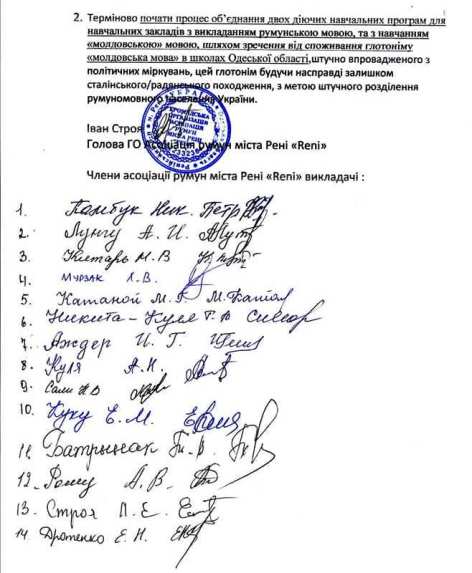 2. Терміново почати процес об’єднання двох діючих навчальних програм для
навчальних закладів з викладанням румунською мовою, та з навчанням
«молдовською» мовою, шляхом зречення від споживання глотоніму
«молдовська мова» в школах Одеської області,штучно впровадженого з
політичних міркувань, цей глотонім будучи насправді залишком
сталінського/радянського походження, з метою штучного розділення
румуномовного населення України.
Іван Строя
Голова ГО Асоціація румун міста Рені «Reni»
Члени асоціації румун міста Рені «Reni» викладачі :
1. Памбук Ник. Петр
2. Лунгу А. И.
3. Китарь М. В
4. Мурзак Л. В.
5. Катаной М. Г.
6. Никита - Куля Г. В
7. Андер И. Г.
8. Куля А. Н.
9. Сали
10. Куку Е. М.
11. Батрынак
12. А. В.
13. Строя П. Е.
14. Дротенко Е. Н.